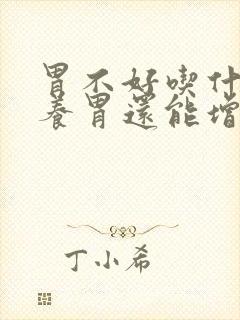 胃不好喫什
養胃還能增
丁小希